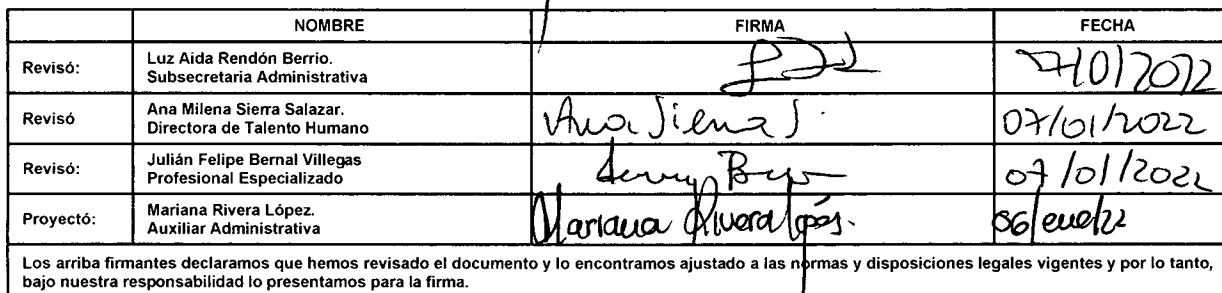 NOMBRE FIRMA FECHA
Revisó: Luz Aida Rendón Berrio.
Subsecretaria Administrativa
Revisó Ana Milena Sierra Salazar.
Directora de Talento Humano
Ana Sierra S. 07/01/2022
Revisó: Julián Felipe Bernal Villegas
Profesional Especializado
07/01/2022
Proyectó: Mariana Rivera López.
Auxiliar Administrativa
Mariana Rivera López. 06/ene/22
Los arriba firmantes declaramos que hemos revisado el documento y lo encontramos ajustado a las normas y disposiciones legales vigentes y por lo tanto,
bajo nuestra responsabilidad lo presentamos para la firma.